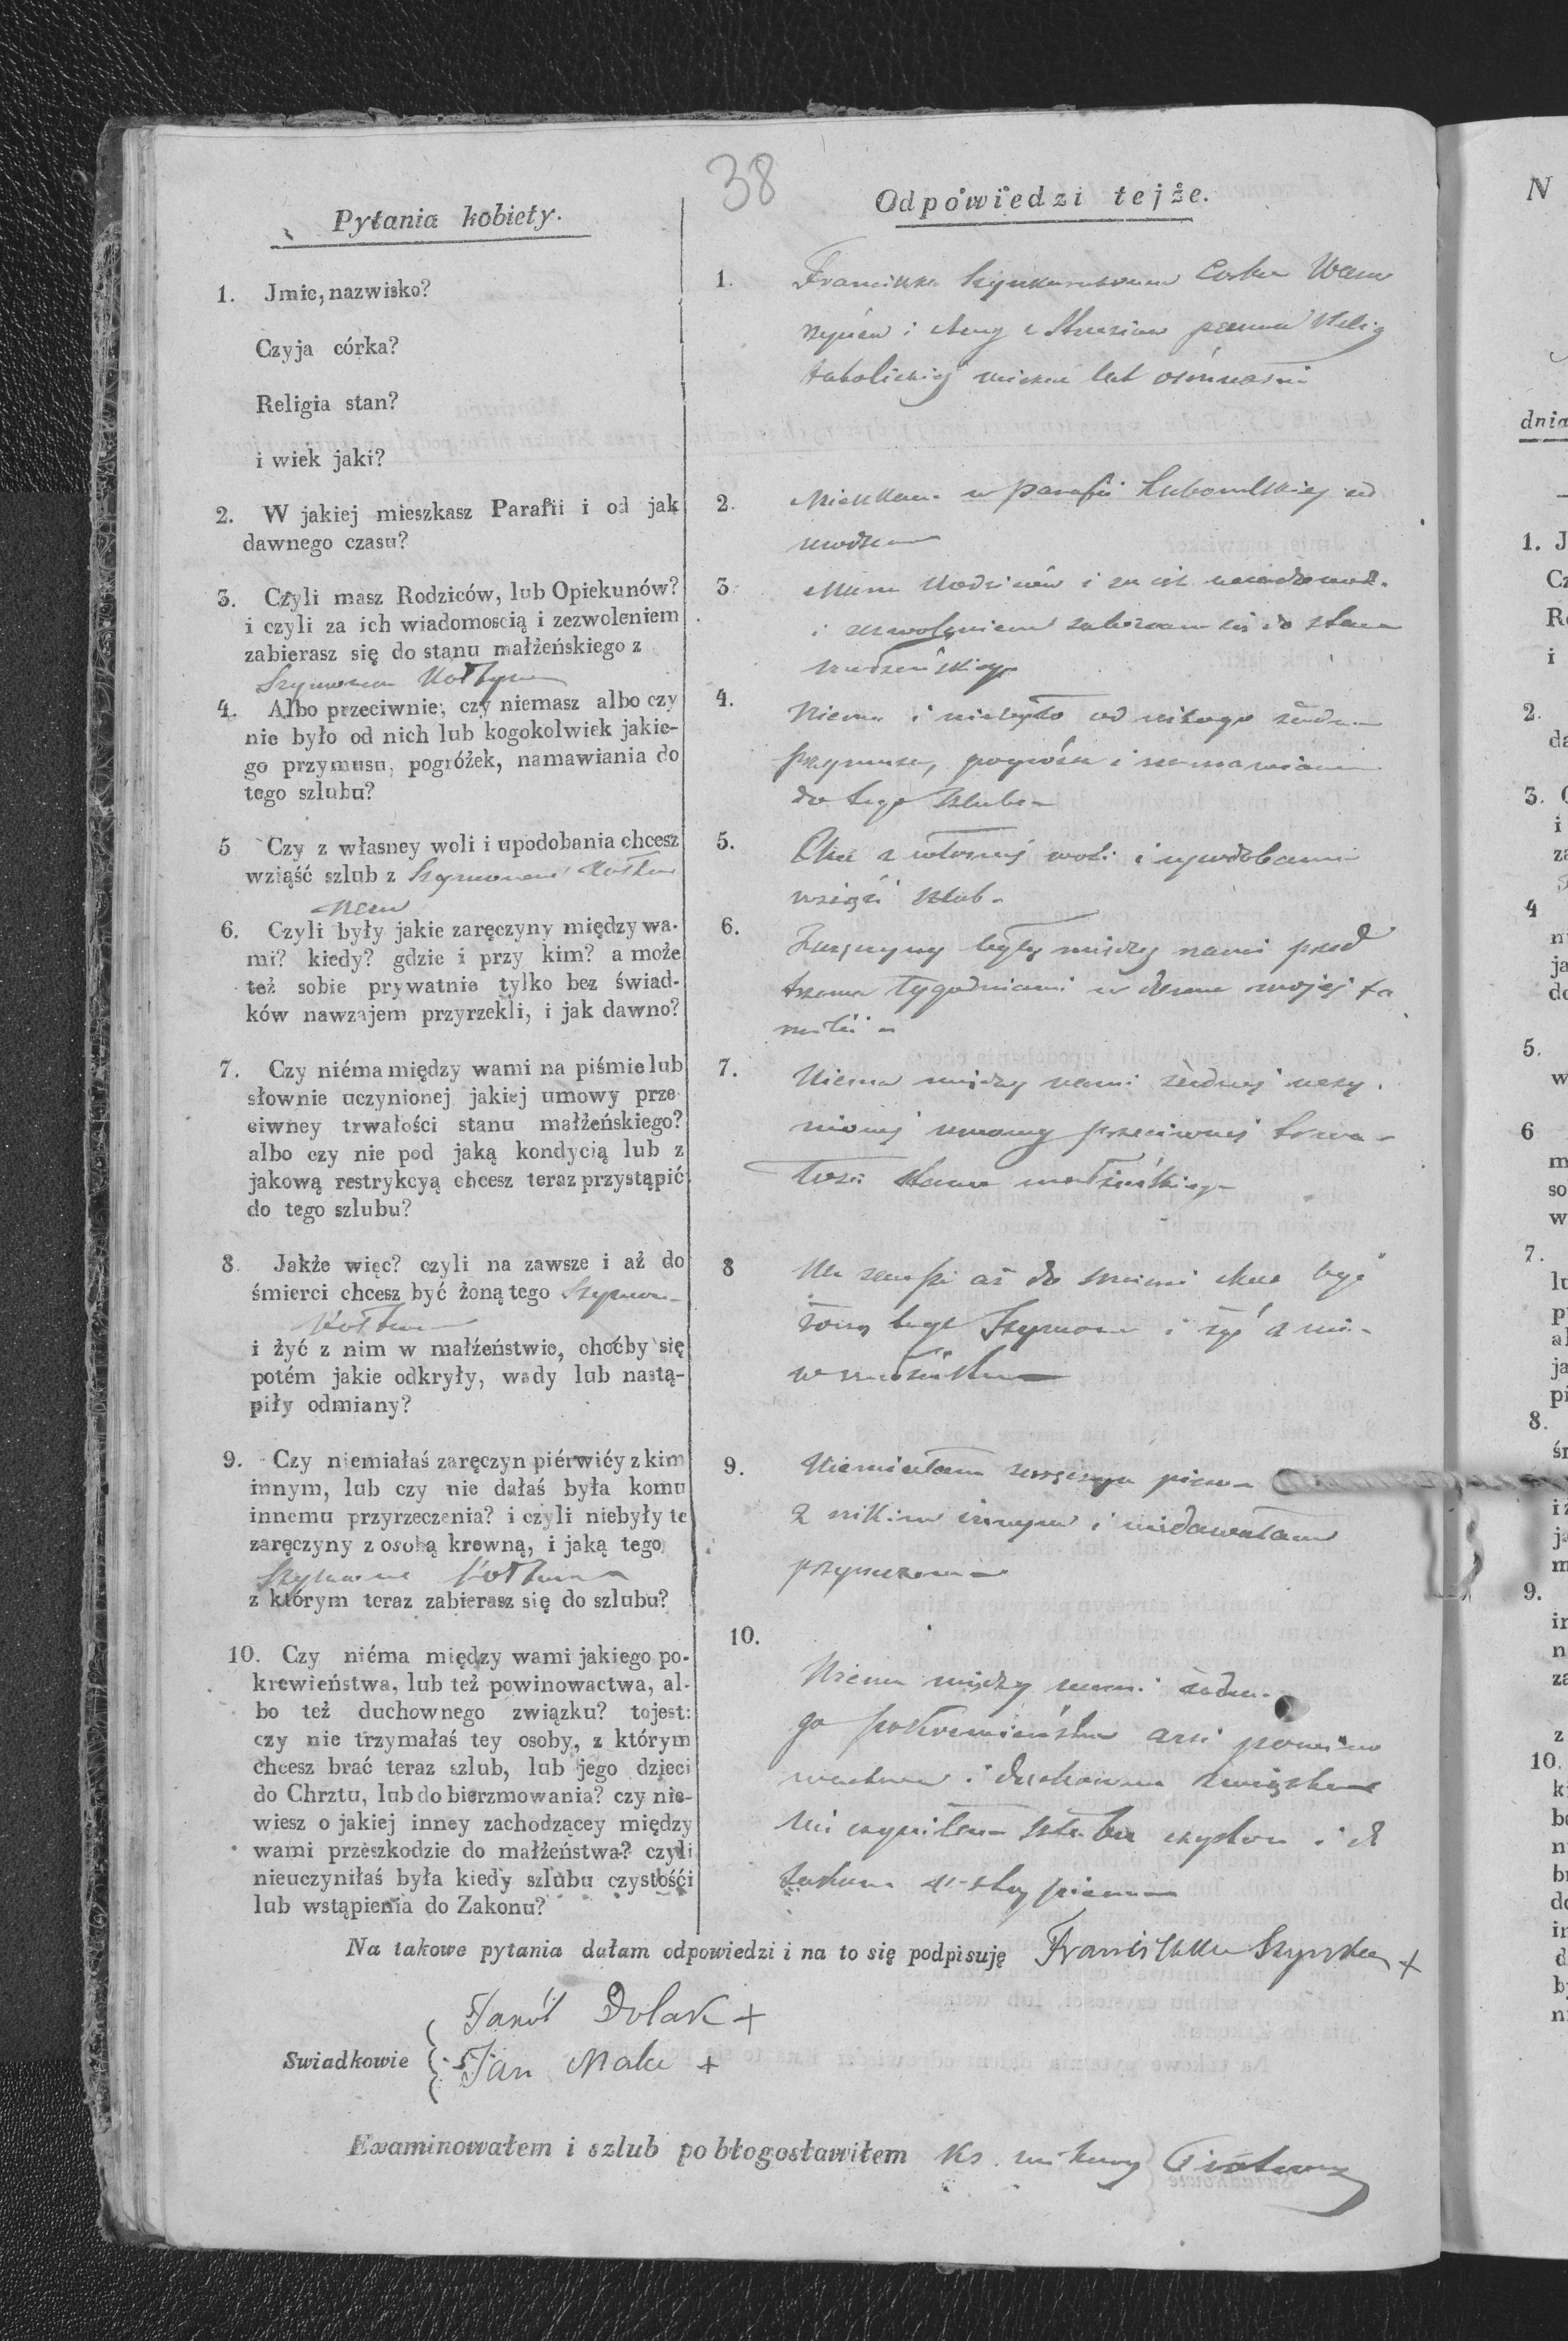 38
Pytania kobiety.
1. Jmie, nazwisko?
Czyja córka?
Religia stan?
i wiek jaki?
2. W jakiej mieszkasz Parafii i od jak
dawnego czasu?
3. Czyli masz Rodziców, lub Opiekunów?
i czyli za ich wiadomoscią i zezwoleniem
zabierasz się do stanu małżeńskiego z
Szymonem Kołtunem
4. Albo przeciwnie; czy niemasz albo czy
nie było od nich lub kogokolwiek jakie-
go przymusu, pogróżek, namawiania do
tego szlubu?
5 Czy z własney woli i upodobania chcesz
wziąść szlub z Szymonem Kołtu
nem
6. Czyli były jakie zaręczyny między wa-
mi? kiedy? gdzie i przy kim? a może
też sobie prywatnie tylko bez świad-
ków nawzajem przyrzekli, i jak dawno?
7. Czy niéma między wami na piśmie lub
słownie uczynionej jakiej umowy prze-
ciwney trwałości stanu małżeńskiego?
albo czy nie pod jaką kondycią lub z
jakową restrykcyą chcesz teraz przystąpić
do tego szlubu?
8. Jakże więc? czyli na zawsze i aż do
śmierci chcesz być żoną tego Szymona
Kołtuna
i żyć z nim w małżeństwie, choćby się
potém jakie odkryły, wady lub nastą-
piły odmiany?
9. Czy niemiałaś zaręczyn piérwiéy z kim
innym, lub czy nie dałaś była komu
innemu przyrzeczenia? i czyli niebyły te
zaręczyny z osobą krewną, i jaką tego
Szymona Kołtuna
z którym teraz zabierasz się do szlubu?
10. Czy niéma między wami jakiego po-
krewieństwa, lub też powinowactwa, al-
bo też duchownego związku? tojest:
czy nie trzymałaś tey osoby, z którym
chcesz brać teraz szlub, lub jego dzieci
do Chrztu, lub do bierzmowania? czy nie-
wiesz o jakiej inney zachodzącey między
wami przeszkodzie do małżeństwa? czyli
nieuczyniłaś była kiedy szlubu czystośći
lub wstąpienia do Zakonu?
Odpowiedzi tejże.
1. Franciszka Corka Waw
rzyńca i panna Relig
katolickiej lat ośmnaście
2. Mieszkam w parafii od
urodzenia
3. Mam Rodziców i za ich
i zezwoleniem zabieram się do stanu
małżeńskiego
4. Niema i niebyło od nikogo żadnego
przymusu, pogróżek i namawiania
do tego szlubu
5. Chcę z własnej woli i upodobania
wziąść szlub
6. Zaręczyny były między nami przed
trzema tygodniami w domu mojej fa
milii
7. Niema między nami żadnej uczy
nionej umowy przeciwnej trwa-
łości stanu małżeńskiego
8 Na zawsze aż do śmierci chce być
żoną tego Szymona i żyć z nim
w małżeństwie
9. Niemiałam zaręczyn pierw
z nikim innym i niedawałam
przyrzeczenia
10.
Niema między nami żadne-
go pokrewieństwa ani powino
wactwa i duchowna związku
Nie czyniłam szlubu czystości i do
zakonu wstąpienia
Na takowe pytania dałam odpowiedzi i na to się podpisuję Franciszka +
Swiadkowie
Jakób Dolak +
Jan Maka +
Examinowałem i szlub pobłogosławiłem Ks.